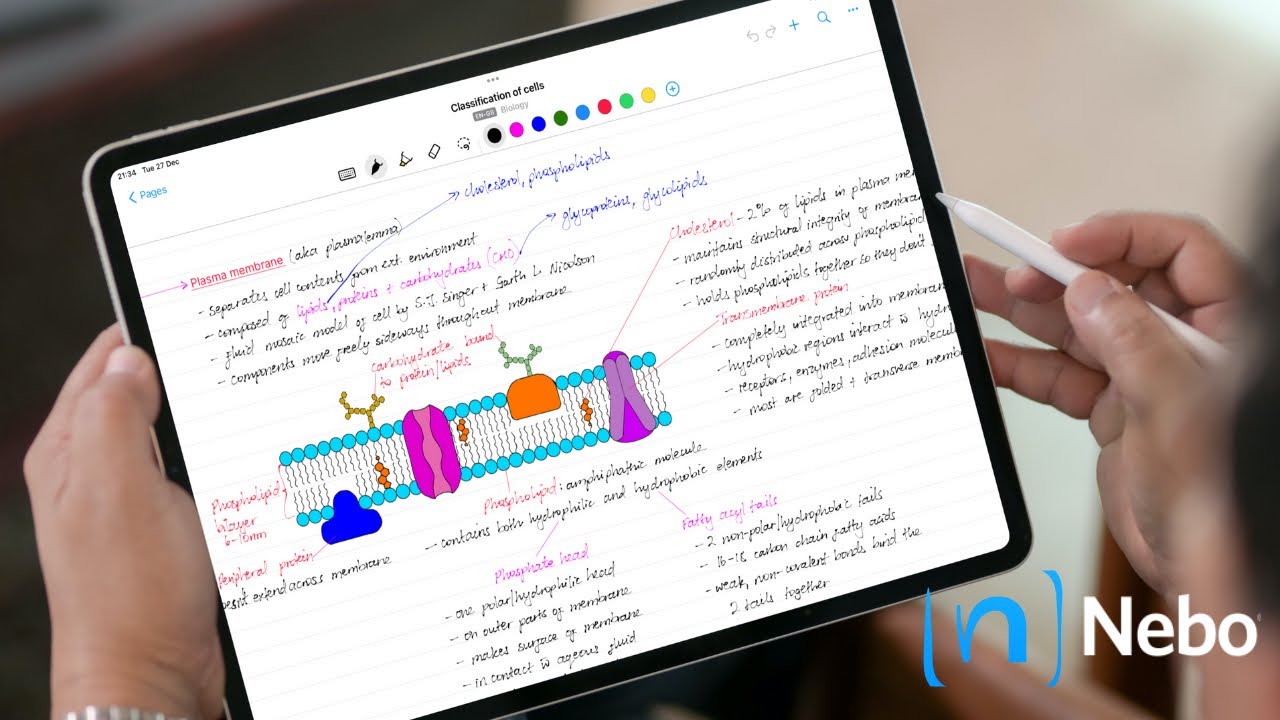 21:34 Tue 27 Dec
Pages
Classification of cells
EN-GB Biology
→ cholesterol, phospholipids
→ glycoproteins, glycolipids
→ Plasma membrane (aka plasmalemma)
- separates cell contents from ext. environment
- composed of lipids, proteins + carbohydrates (CHO)
- fluid mosaic model of cell by S.J. Singer + Garth L. Nicolson
- components move freely sideways throughout membrane
Cholesterol - 2% of lipids in plasma
- maintains structural integrity of
- randomly distributed across
- holds phospholipids together so they don't
Transmembrane protein
- completely integrated into
- hydrophobic regions interact w
- receptors, enzymes, adhesion
- most are folded + transverse
carbohydrate bound
to protein/lipids
Phospholipid
bilayer
6-10nm
Peripheral protein
extend across membrane
Phospholipid: amphipathic molecule
- contains both hydrophilic and hydrophobic elements
Phosphate head
- one polar/hydrophilic head
- on outer parts of membrane
- makes surface of membrane
- in contact w aqeous fluid
Fatty acyl tails
- 2 non-polar/hydrophobic tails
- 16-18 carbon chain fatty acids
- weak, non-covalent bonds bind the
2 tails together
[n] Nebo